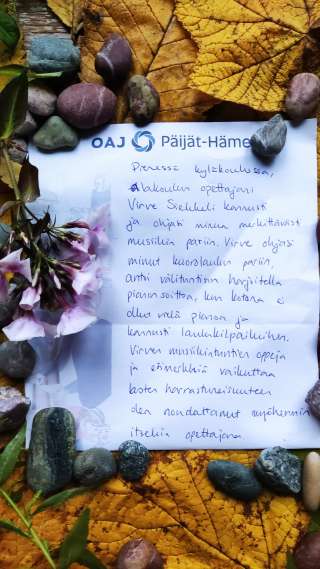 OAJ Päijät-Häme
Pienessä kyläkoulussa,
alakoulun opettajani
Virve kannusti
ja ohjasi minua merkittävästi
musiikin pariin. Virve ohjasi
minut kuorolaulun pariin,
antoi välituntisin harjoitella
pianon soittoa, kun kotona ei
ollut vielä pianoa ja
kannusti laulukilpailuihin.
Virven musiikintuntien oppeja
ja esimerkkiä vaikuttaa
lasten harrastuneisuuteen
olen noudattanut myöhemmin
itsekin opettajana